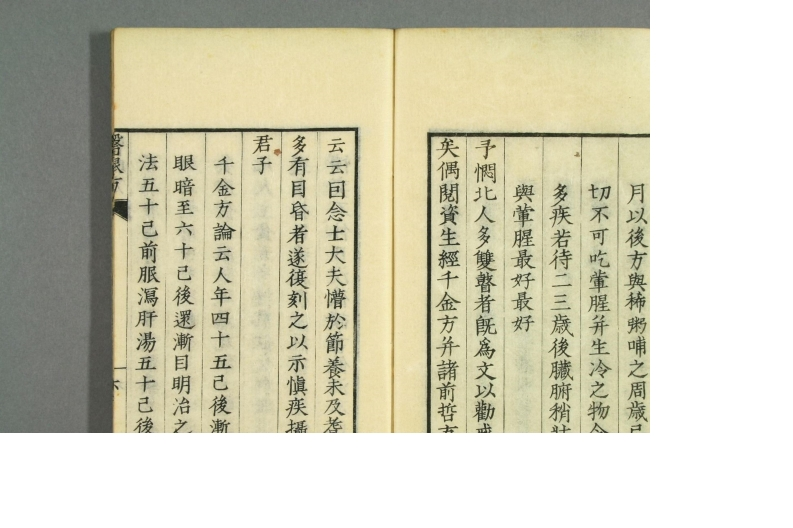 月以後方與稀粥哺之周歲
切不可吃葷腥并生冷之物
多疾若待二三歲後臟腑稍
與葷腥最好最好
予憫北人多雙瞽者旣爲文以勸
矣偶閱資生經千金方并諸前哲
云云囙念士大夫懵於節養未及
多有目昏者遂復刻之以示愼疾攝
君子
千金方論云人年四十五已後漸
眼暗至六十已後還漸目明治之
法五十已前服瀉肝湯五十已後